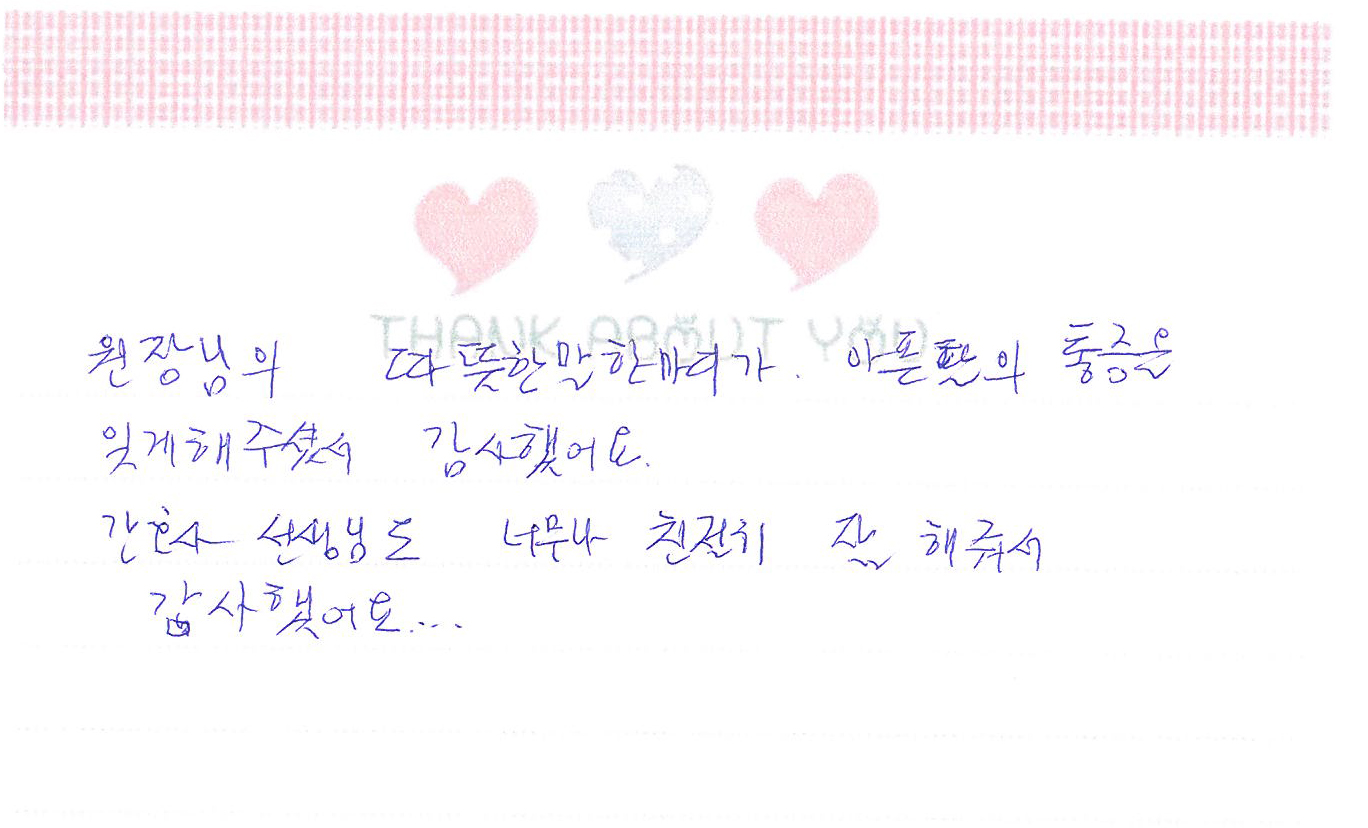 THANK ABOUT YOU
원장님의 따뜻한말한마디가. 아픈팔의 통증을
잊게해주셨서 감사했어요.
간호사 선생님도 너무나 친절히 잘 해줘서
감사했어요...